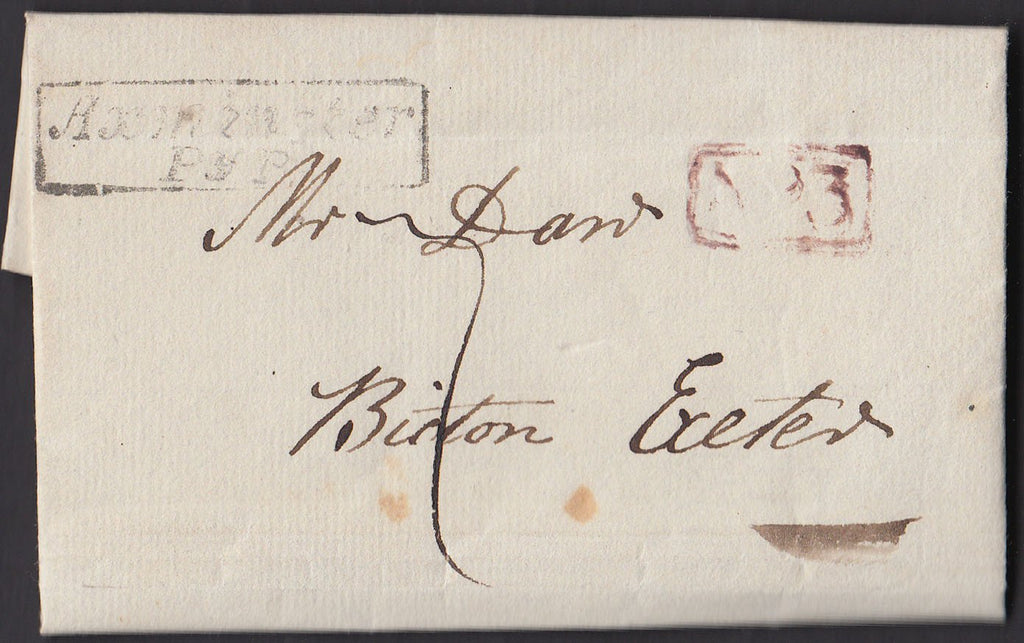 Axminster
Py P
Mr Daw
7
Bicton Exeter